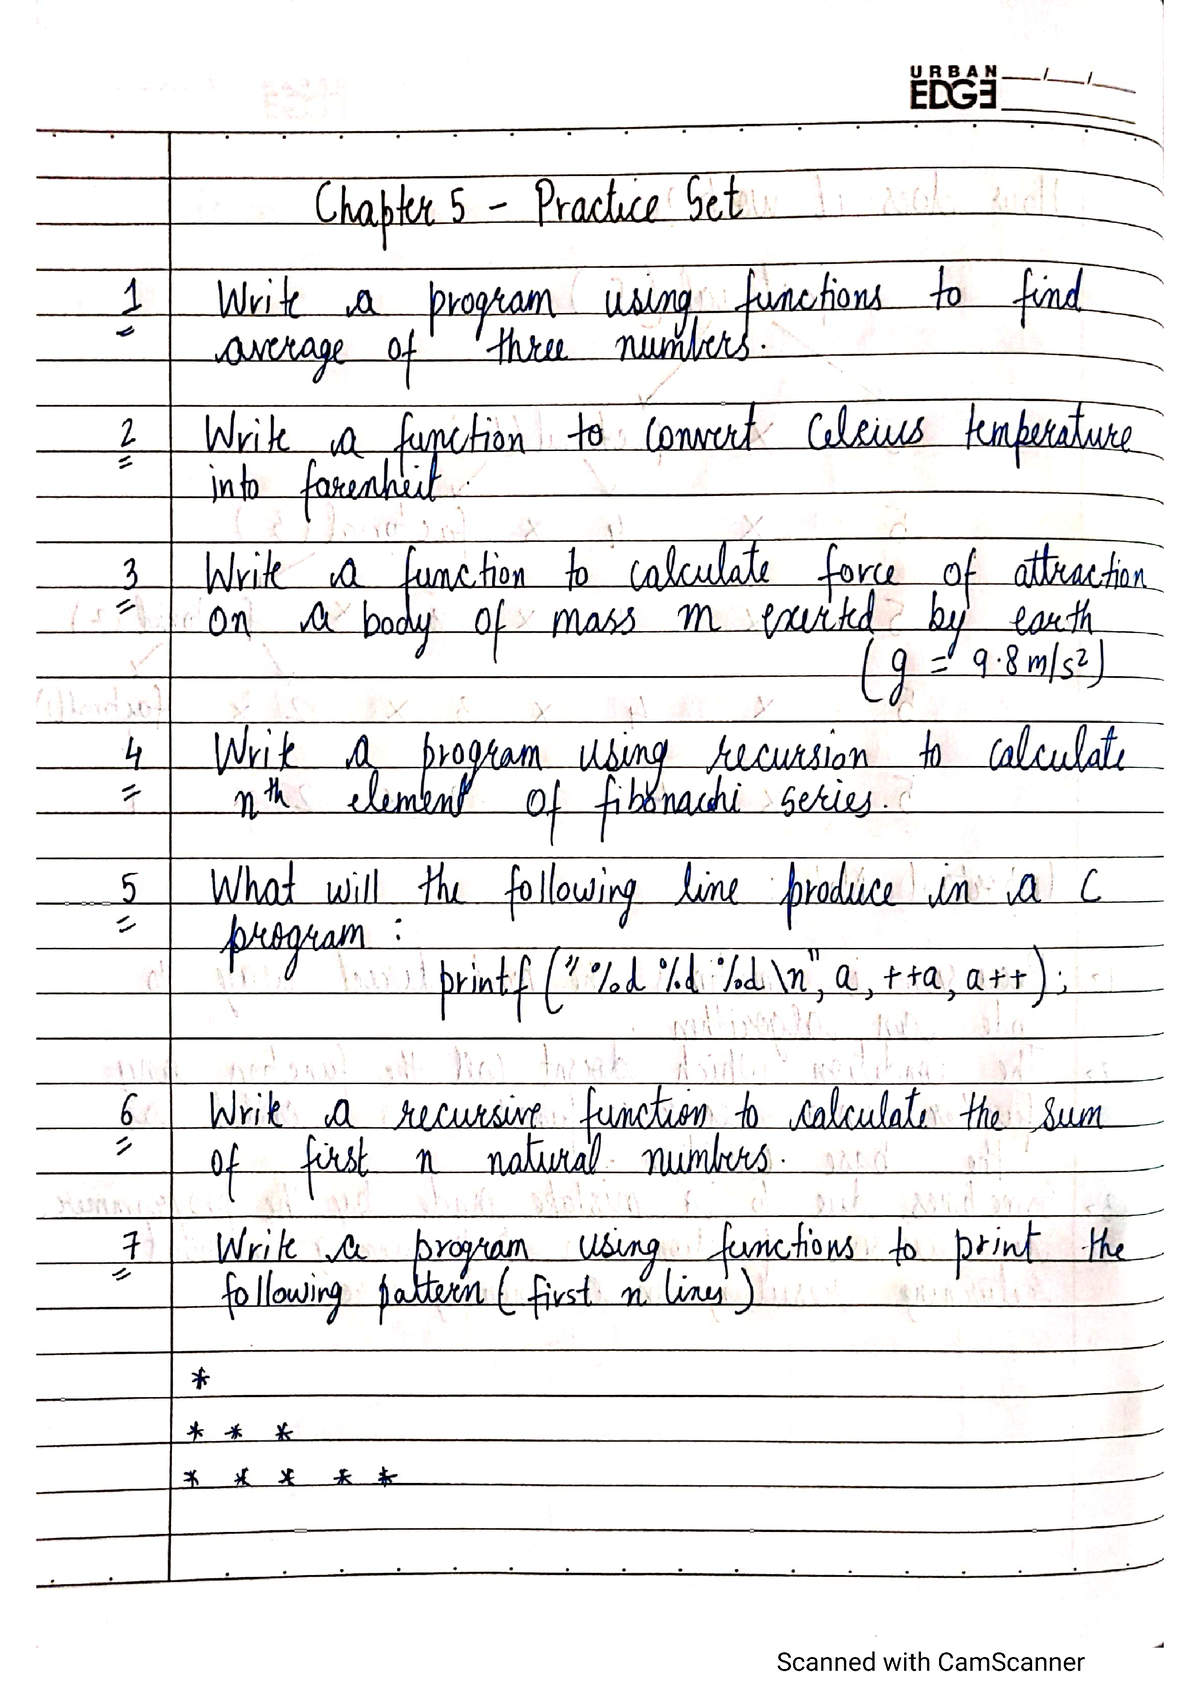 URBAN
EDGE
Chapter 5 - Practice Set
1 Write a program using functions to find
average of three numbers.
2 Write a function to convert Celsius temperature
into farenheit
3 Write a function to calculate force of attraction
on a body of mass m exerted by earth
(g = 9.8 m/s²)
4 Write a program using recursion to calculate
nth element of fibonachi series.
5 What will the following line produce in a C
program :
printf ("%d %d %d \n", a, ++a, a++);
6 Write a recursive function to calculate the sum
of first n natural numbers.
7 Write a program using functions to print the
following pattern ( first n lines )
*
* * *
* * * * *
Scanned with CamScanner